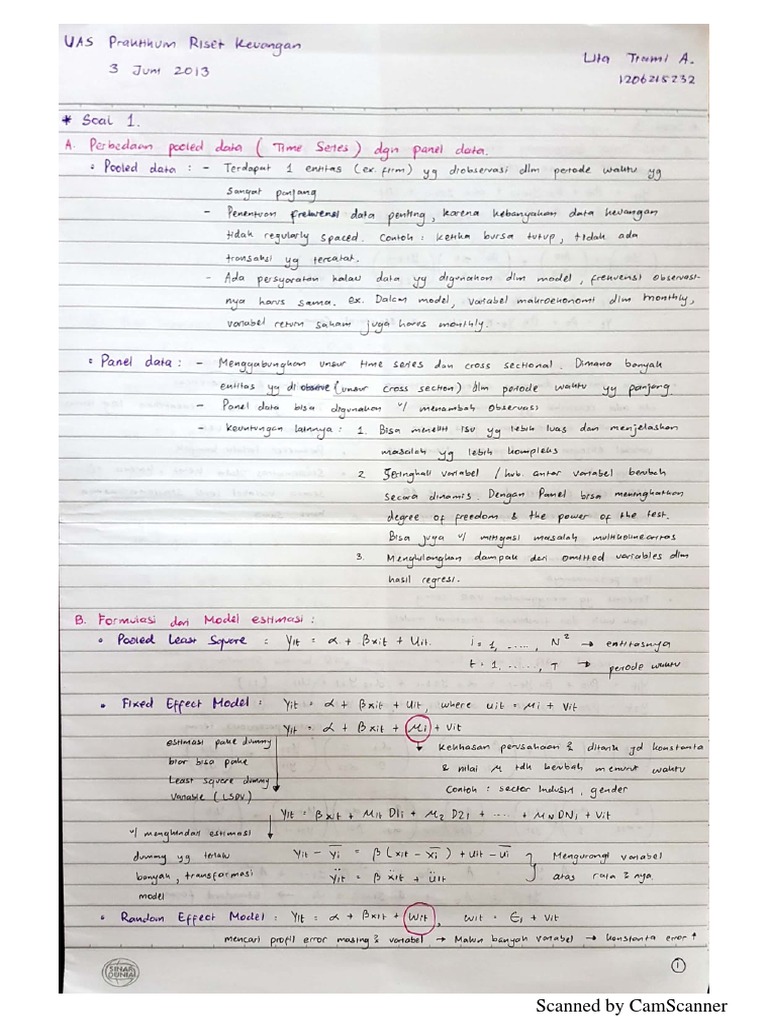 UAS Praktikum Riset Keuangan
3 Juni 2013
Lita Trami A.
1206215232
* Soal 1.
A. Perbedaan pooled data (Time Series) dgn panel data.
• Pooled data : - Terdapat 1 entitas (ex. firm) yg diobservasi dlm periode waktu yg
sangat panjang
- Penentuan frekuensi data penting, karena kebanyakan data keuangan
tidak regularly spaced. Contoh : ketika bursa tutup, tidak ada
transaksi yg tercatat.
- Ada persyaratan kalau data yg digunakan dlm model, frekuensi observasi-
nya harus sama. ex. Dalam model, variabel makroekonomi dlm monthly,
variabel return saham juga harus monthly.
• Panel data : - Menggabungkan unsur time series dan cross sectional. Dimana banyak
entitas yg di observe (unsur cross section) dlm periode waktu yg panjang.
- Panel data bisa digunakan u/ menambah observasi
- Keuntungan lainnya : 1. Bisa meneliti isu yg lebih luas dan menjelaskan
masalah yg lebih kompleks
2. Seringkali variabel / hub. antar variabel berubah
secara dinamis. Dengan Panel bisa meningkatkan
degree of freedom & the power of the test.
Bisa juga u/ mitigasi masalah multikolinearitas
3. Menghilangkan dampak dari omitted variables dlm
hasil regresi.
B. Formulasi dari Model estimasi :
• Pooled Least Square : Yit = α + βxit + Uit. i = 1, ....., N² → entitasnya
t = 1, ....., T → periode waktu
• Fixed Effect Model : Yit = α + βxit + Uit, where uit = μi + Vit
Yit = α + βxit + μi + Vit
estimasi pake dummy
biar bisa pake
Least Square dummy
Variable (LSDV)
↓ Kekhasan perusahaan² ditarik jd konstanta
& nilai μ tdk berubah menurut waktu
Contoh : sector industri, gender
Yit = βxit + μ1t D1i + μ2 D2i + .... + μN DNi + Vit
u/ menghindari estimasi
dummy yg terlalu
banyak, transformasi
model
Yit - Ȳi = β(xit - x̄i) + uit - ūi
Ÿit = β ẍit + üit
Mengurangi variabel
atas rata²nya.
• Random Effect Model : Yit = α + βxit + wit, wit = Ei + vit
mencari profil error masing² variabel → Makin banyak variabel → konstanta error ↑
SINAR DUNIA
1
Scanned by CamScanner